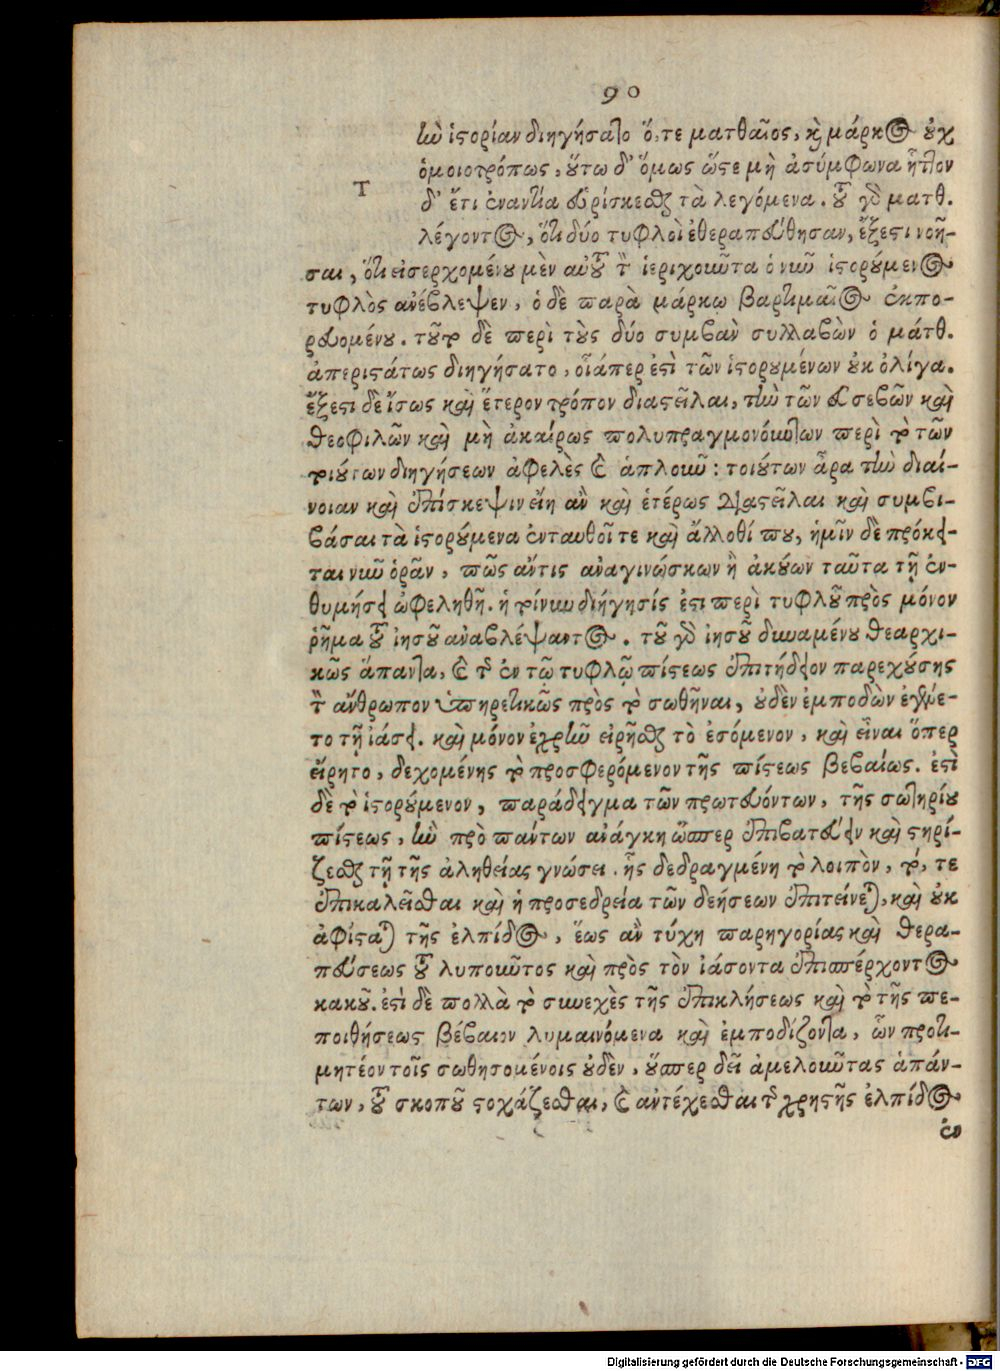 90
τὴν ἱστορίαν διηγήσατο ὅ, τε ματθαῖος, καὶ μάρκος οὐχ
ὁμοιοτρόπως, οὕτω δ' ὅμως ὥστε μὴ ἀσύμφωνα ἧττον
Τ
δ' ἔτι ἐναντία εὑρίσκεσθαι τὰ λεγόμενα. τοῦ γὰρ ματθ.
λέγοντος, ὅτι δύο τυφλοὶ ἐθεραπεύθησαν, ἔξεστι νοῆ-
σαι, ὅτι εἰσερχομένου μὲν αὐτοῦ τὴν ἱεριχοῦντα ὁ νῦν ἱστορούμενος
τυφλὸς ἀνέβλεψεν, ὁ δὲ παρὰ μάρκῳ βαρτιμαῖος ἐκπο-
ρευομένου. τοῦτο δὲ περὶ τοὺς δύο συμβὰν συλλαβὼν ὁ μάτθ.
ἀπεριστάτως διηγήσατο, οἷάπερ ἐστὶ τῶν ἱστορουμένων οὐκ ὀλίγα.
ἔξεστι δὲ ἴσως καὶ ἕτερον τρόπον διαστεῖλαι, τὴν τῶν εὐσεβῶν καὶ
θεοφιλῶν καὶ μὴ ἀκαίρως πολυπραγμονούντων περὶ τὸ τῶν
τοιούτων διηγήσεων ἀφελὲς καὶ ἁπλοῦν: τοιούτων ἄρα τὴν διαί-
νοιαν καὶ ἐπίσκεψιν εἴη ἂν καὶ ἑτέρως διαστεῖλαι καὶ συμβι-
βάσαι τὰ ἱστορούμενα ἐνταυθοῖ τε καὶ ἄλλοθί που, ἡμῖν δὲ πρόκει-
ται νῦν ὁρᾶν, πῶς ἄντις ἀναγινώσκων ἢ ἀκούων ταῦτα τῇ ἐν-
θυμήσει ὠφεληθῇ. ἡ τοίνυν διήγησίς ἐστι περὶ τυφλοῦ πρὸς μόνον
ῥῆμα τοῦ ἰησοῦ ἀναβλέψαντος. τοῦ γὰρ ἰησοῦ δυναμένου θεαρχι-
κῶς ἅπαντα, καὶ τῆς ἐν τῷ τυφλῷ πίστεως ἐπιτήδειον παρεχούσης
τὸν ἄνθρωπον ὑπηρετικῶς πρὸς τὸ σωθῆναι, οὐδὲν ἐμποδὼν ἐγένε-
το τῇ ἰάσει. καὶ μόνον ἐχρῆν εἰρῆσθαι τὸ ἐσόμενον, καὶ εἶναι ὅπερ
εἴρητο, δεχομένης τὸ προσφερόμενον τῆς πίστεως βεβαίως. ἐστὶ
δὲ τὸ ἱστορούμενον, παράδειγμα τῶν πρωτευόντων, τῆς σωτηρίου
πίστεως, ἣν πρὸ πάντων ἀνάγκη ὥσπερ ἐπιβατεύειν καὶ στηρί-
ζεσθαι τῇ τῆς ἀληθείας γνώσει. ἧς δεδραγμένη τὸ λοιπὸν, τό, τε
ἐπικαλεῖσθαι καὶ ἡ προσεδρεία τῶν δεήσεων ἐπιτείνεται, καὶ οὐκ
ἀφίσταται τῆς ἐλπίδος, ἕως ἂν τύχῃ παρηγορίας καὶ θερα-
πεύσεως τοῦ λυποῦντος καὶ πρὸς τὸν ἰάσοντα ἐπισπέρχοντος
κακοῦ. ἐστὶ δὲ πολλὰ τὸ συνεχὲς τῆς ἐπικλήσεως καὶ τὸ τῆς πε-
ποιθήσεως βέβαιον λυμαινόμενα καὶ ἐμποδίζοντα, ὧν προτι-
μητέον τοῖς σωθησομένοις οὐδὲν, οὕσπερ δεῖ ἀμελοῦντας ἁπάν-
των, τοῦ σκοποῦ στοχάζεσθαι, καὶ ἀντέχεσθαι τῆς χρηστῆς ἐλπίδος
ἐν
Digitalisierung gefördert durch die Deutsche Forschungsgemeinschaft - DFG